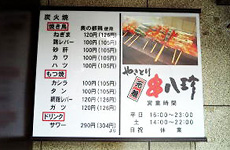 炭火焼
焼き鳥 奥の都鶏使用
ねぎま 120円(126円)
鶏レバー 100円(105円)
砂肝 100円(105円)
カワ 100円(105円)
ハツ 100円(105円)
もつ焼
カシラ 100円(105円)
タン 100円(105円)
網脂レバー 120円(126円)
ガツ 100円(105円)
ドリンク
サワー 290円(304円)
やきとり
串八珍
営業時間
平日 15:00〜23:00
土 14:00〜22:00
日祝 休業